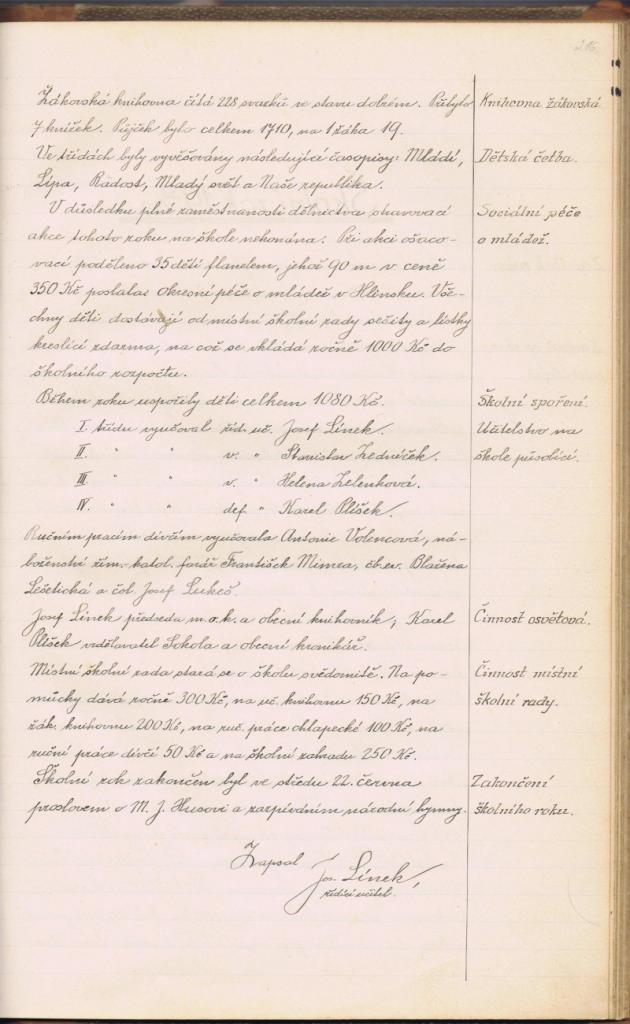 216.
Žákovská knihovna čítá 228 svazků ve stavu dobrém. Přibylo
Knihovna žákovská
7 knížek. Půjček bylo celkem 1710, na 1 žáka 19.
Ve třídách byly vyvěšovány následující časopisy: Mládí,
Dětská četba.
Lípa, Radost, Mladý svět a Naše republika.
V důsledku plné zaměstnanosti dělnictva stravovací
Sociální péče
akce tohoto roku na škole nekonána. Při akci ošaco-
o mládež.
vací poděleno 35 dětí flanelem, jehož 90 m v ceně
350 Kč poslala okresní péče o mládež v Hlinsku. Vše-
chny děti dostávají od místní školní rady sešity a lístky
kreslicí zdarma, na což se vkládá ročně 1000 Kč do
školního rozpočtu.
Během roku uspořily děti celkem 1080 Kč.
Školní spoření.
I. třídu vyučoval říd. uč. Josef Línek.
Učitelstvo na
II. " " v. " Stanislav Zedníček.
škole působící.
III. " " v. " Helena Zelenková.
IV. " " def " Karel Plíšek.
Ručním pracím dívčím vyučovala Antonie Volencová, ná-
boženství řím. katol. farář František Mimra, čb. ev. Blažena
Lešetická a čsl. Josef Lukeš.
Josef Línek předseda m. o. k. a obecní knihovník, Karel
Činnost osvětová.
Plíšek vzdělavatel Sokola a obecní kronikář.
Místní školní rada stará se o školu svědomitě. Na po-
Činnost místní
můcky dává ročně 300 Kč, na uč. knihovnu 150 Kč, na
školní rady.
žák. knihovnu 200 Kč, na ruč. práce chlapecké 100 Kč, na
ruční práce dívčí 50 Kč a na školní zahradu 250 Kč.
Školní rok zakončen byl ve středu 22. června
Zakončení
proslovem o M. J. Husovi a zazpíváním národní hymny.
školního roku.
Zapsal
Jos. Línek,
řídící učitel.